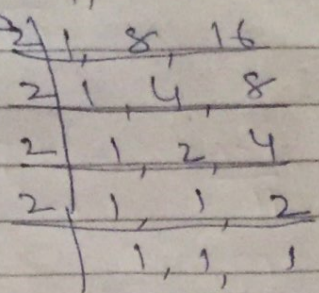 2 | 1, 8, 16
2 | 1, 4, 8
2 | 1, 2, 4
2 | 1, 1, 2
| 1, 1, 1